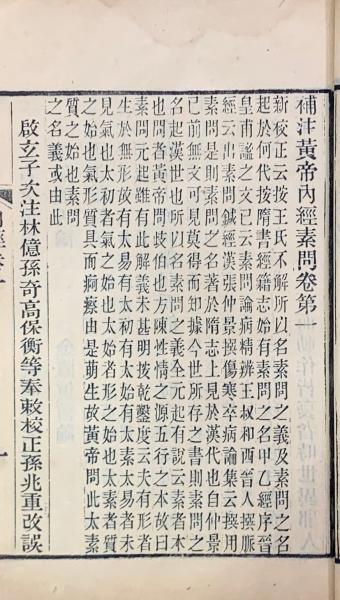 補注黃帝內經素問卷第
新校正云按王氏不解所以名素問之義及素問之名
起於何代按隋書經籍志始有素問之名甲乙經序晉
皇甫謐之文已云素問論病精辨王叔和西晉人撰脈
經云出素問鍼經漢張仲景撰傷寒卒病論集云撰用
素問是則素問之名著於隋志上見於漢代也自仲景
已前無文可見莫得而知據今世所存之書則素問之
名起漢世也所以名素問之義全元起有說云素者本
也問者黃帝問歧伯也方陳性情之源五行之本故曰
素問元起雖有此解義未甚明按乾鑿度云夫有形者
生於無形故有太易有太初有太始有太素太易者未
見氣也太初者氣之始也太始者形之始也太素者質
之始也氣形質具而痾瘵由是萌生故黃帝問此太素
質之始也素問
之名義或由此
啟玄子次注林億孫奇高保衡等奉敕校正孫兆重改誤